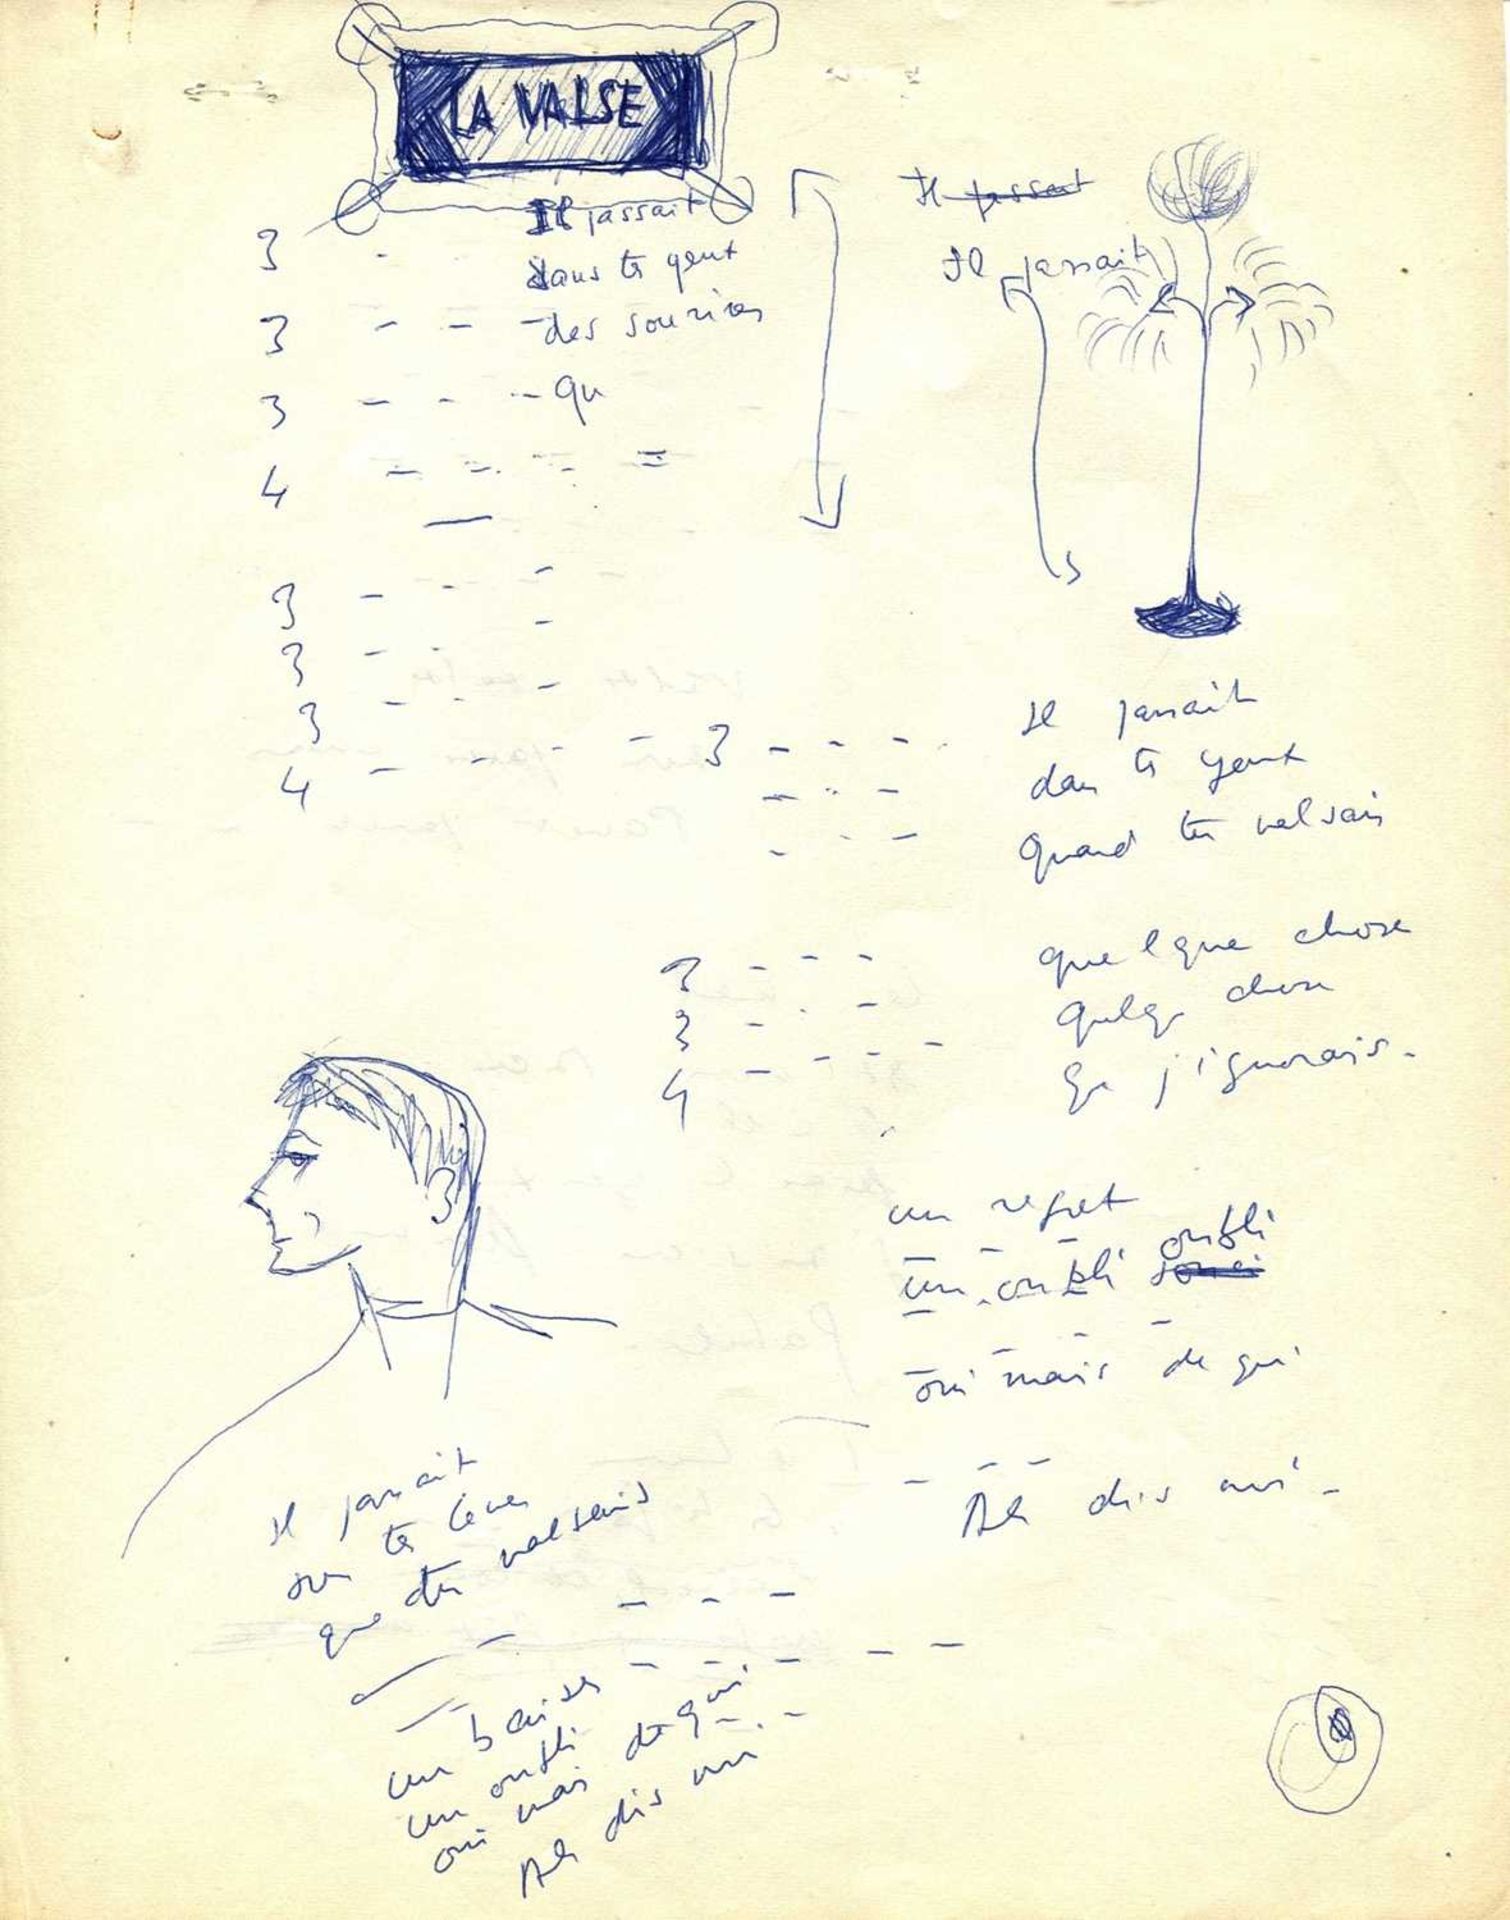 LA VALSE
Il passait
dans tes yeux
des sourires
qu
3
3
3
4
Il passait
Il passait
3
3
3
4
3
Il passait
dans tes yeux
quand tu valsais
3
3
4
quelque chose
quelq. chose
que j'ignorais.
un regret
un oubli souci
oubli
oui mais de qui
Ah dis oui.
Il passait
sur tes lèvres
que tu valsais
un baiser
un oubli
oui mais de qui
Ah dis oui